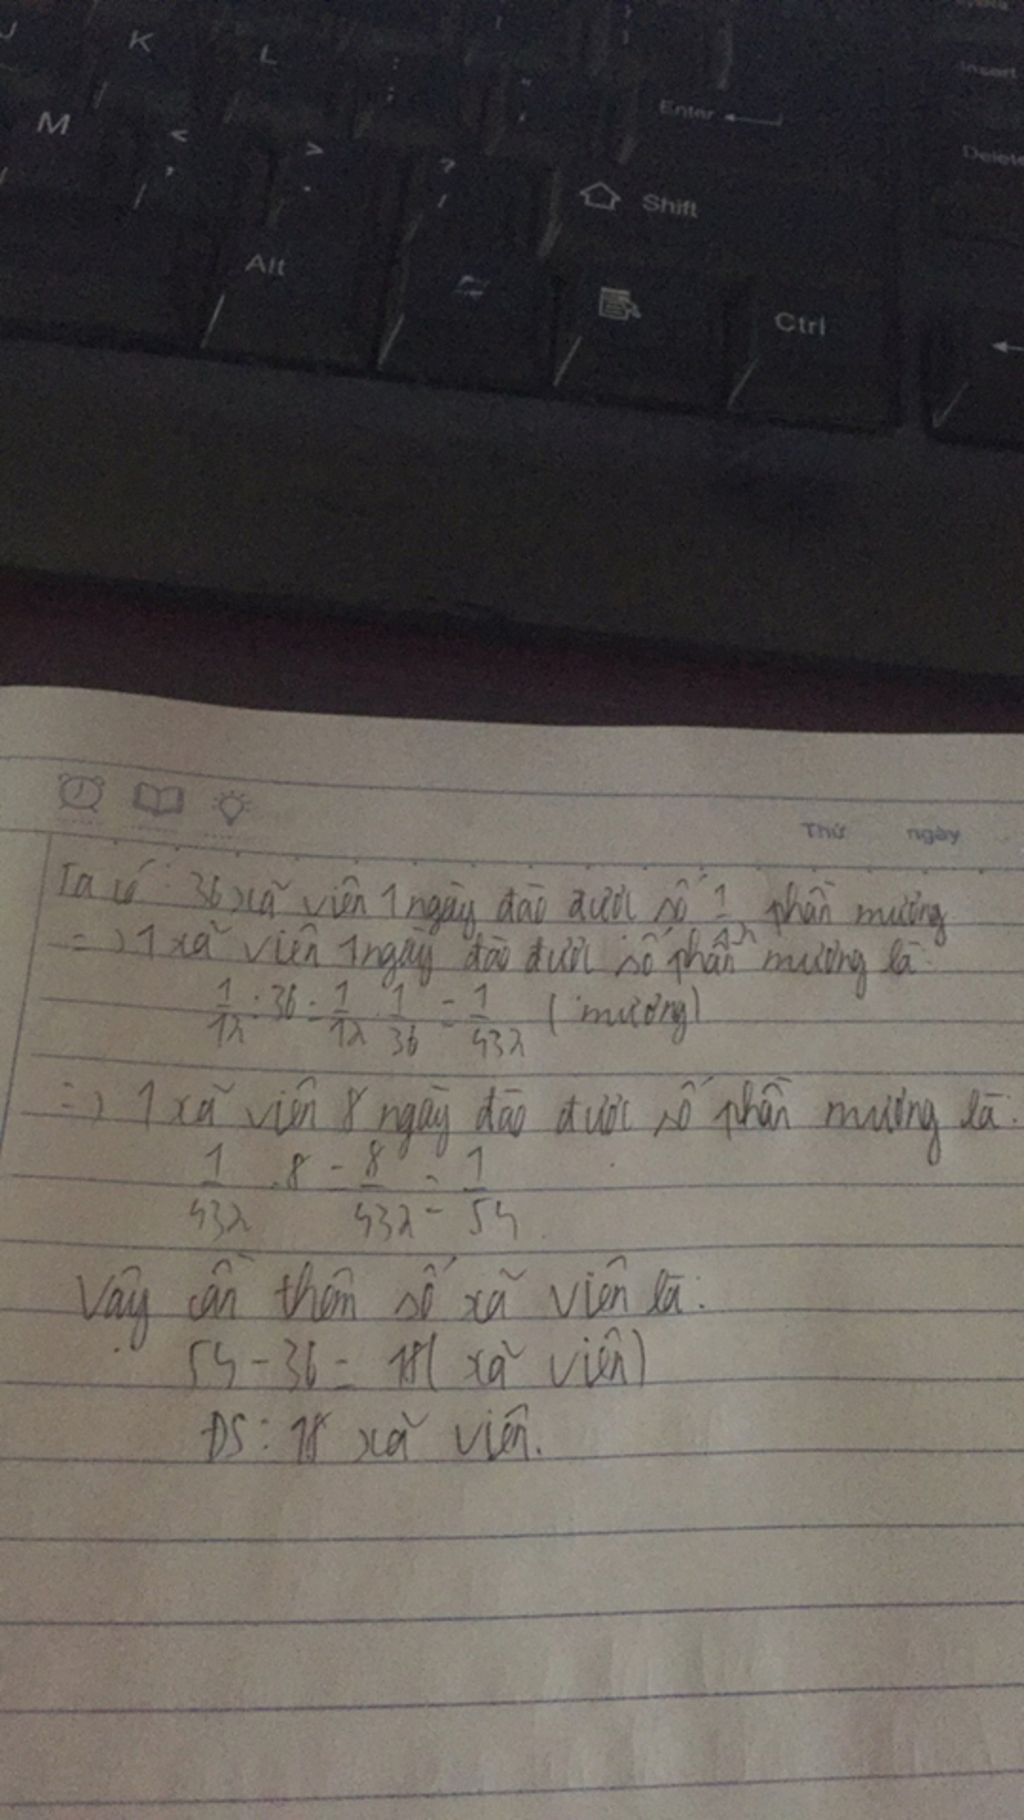 J K L : ; " '
Enter
Insert
M < , > . ? /
Delete
Shift
Alt
Ctrl
Thứ ngày
Ta có: 36 xã viên 1 ngày đào được số 1/12 phần mương
=> 1 xã viên 1 ngày đào được số phần mương là:
1/12 : 36 = 1/12 . 1/36 = 1/432 (mương)
=> 1 xã viên 8 ngày đào được số phần mương là:
1/432 . 8 = 8/432 = 1/54
Vậy cần thêm số xã viên là:
54 - 36 = 18 (xã viên)
ĐS: 18 xã viên.